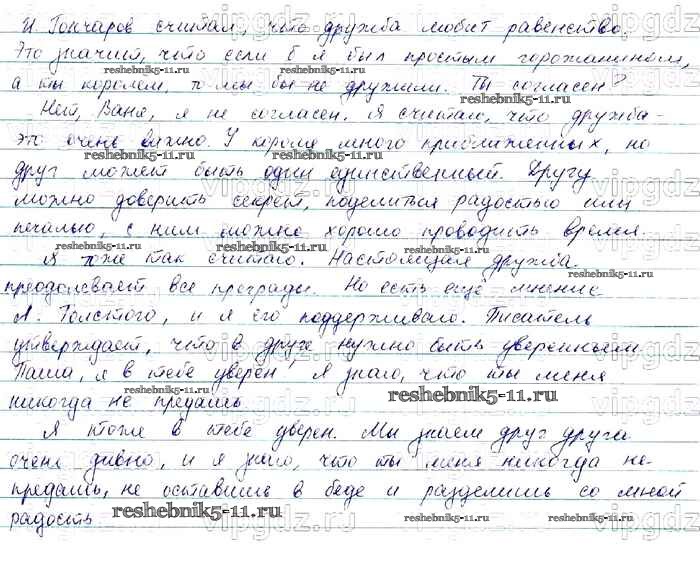 И. Гончаров считал, что дружба любит равенство.
Это значит, что если б я был простым горожанином,
а ты королем, то мы бы не дружили. Ты согласен?
Нет, Ваня, я не согласен. Я считаю, что дружба -
это очень важно. У короля много приближенных, но
друг может быть один единственный. Другу
можно доверить секрет, поделиться радостью или
печалью, с ним можно хорошо проводить время.
Я тоже так считаю. Настоящая дружба
преодолевает все преграды. Но есть ещё мнение
Л. Толстого, и я его поддерживаю. Писатель
утверждает, что в друге нужно быть уверенным
Паша, я в тебе уверен, я знаю, что ты меня
никогда не предашь
Я ктоже в тебе уверен. Мы знаем друг друга
очень давно, и я знаю, что ты меня никогда не-
предашь, не оставишь в беде и разделишь со мной
радость
vipgdz
reshebnik5-11.ru